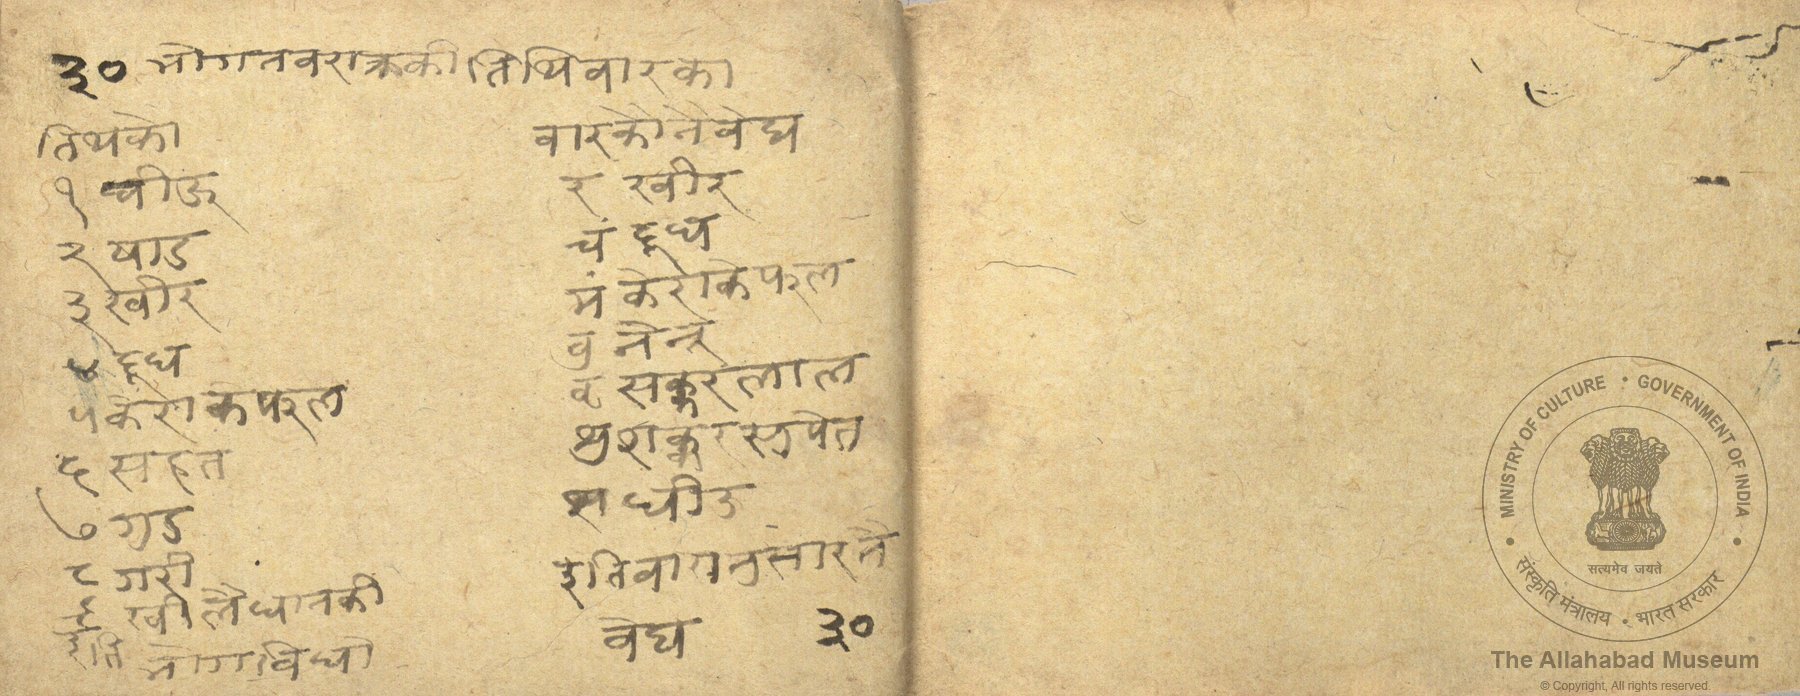 ३० भोगनवरात्रकी तिथिवारका
तिथको
१ घीऊ
२ षाड
३ खीर
४ दूध
५ केराकेफल
६ सहत
७ गुड
८ गरी
९ खीलैधानकी
इति भोगविधी
वारकोनैवेद्य
र खीर
चं दूध
मं केराकेफल
बु नैनू
बृ सक्करलाल
शु शक्करसुपेत
श घीउ
इतिवारानुसारनै
वेद्य ३०
MINISTRY OF CULTURE • GOVERNMENT OF INDIA
सत्यमेव जयते
संस्कृति मंत्रालय • भारत सरकार
The Allahabad Museum
© Copyright, All rights reserved.